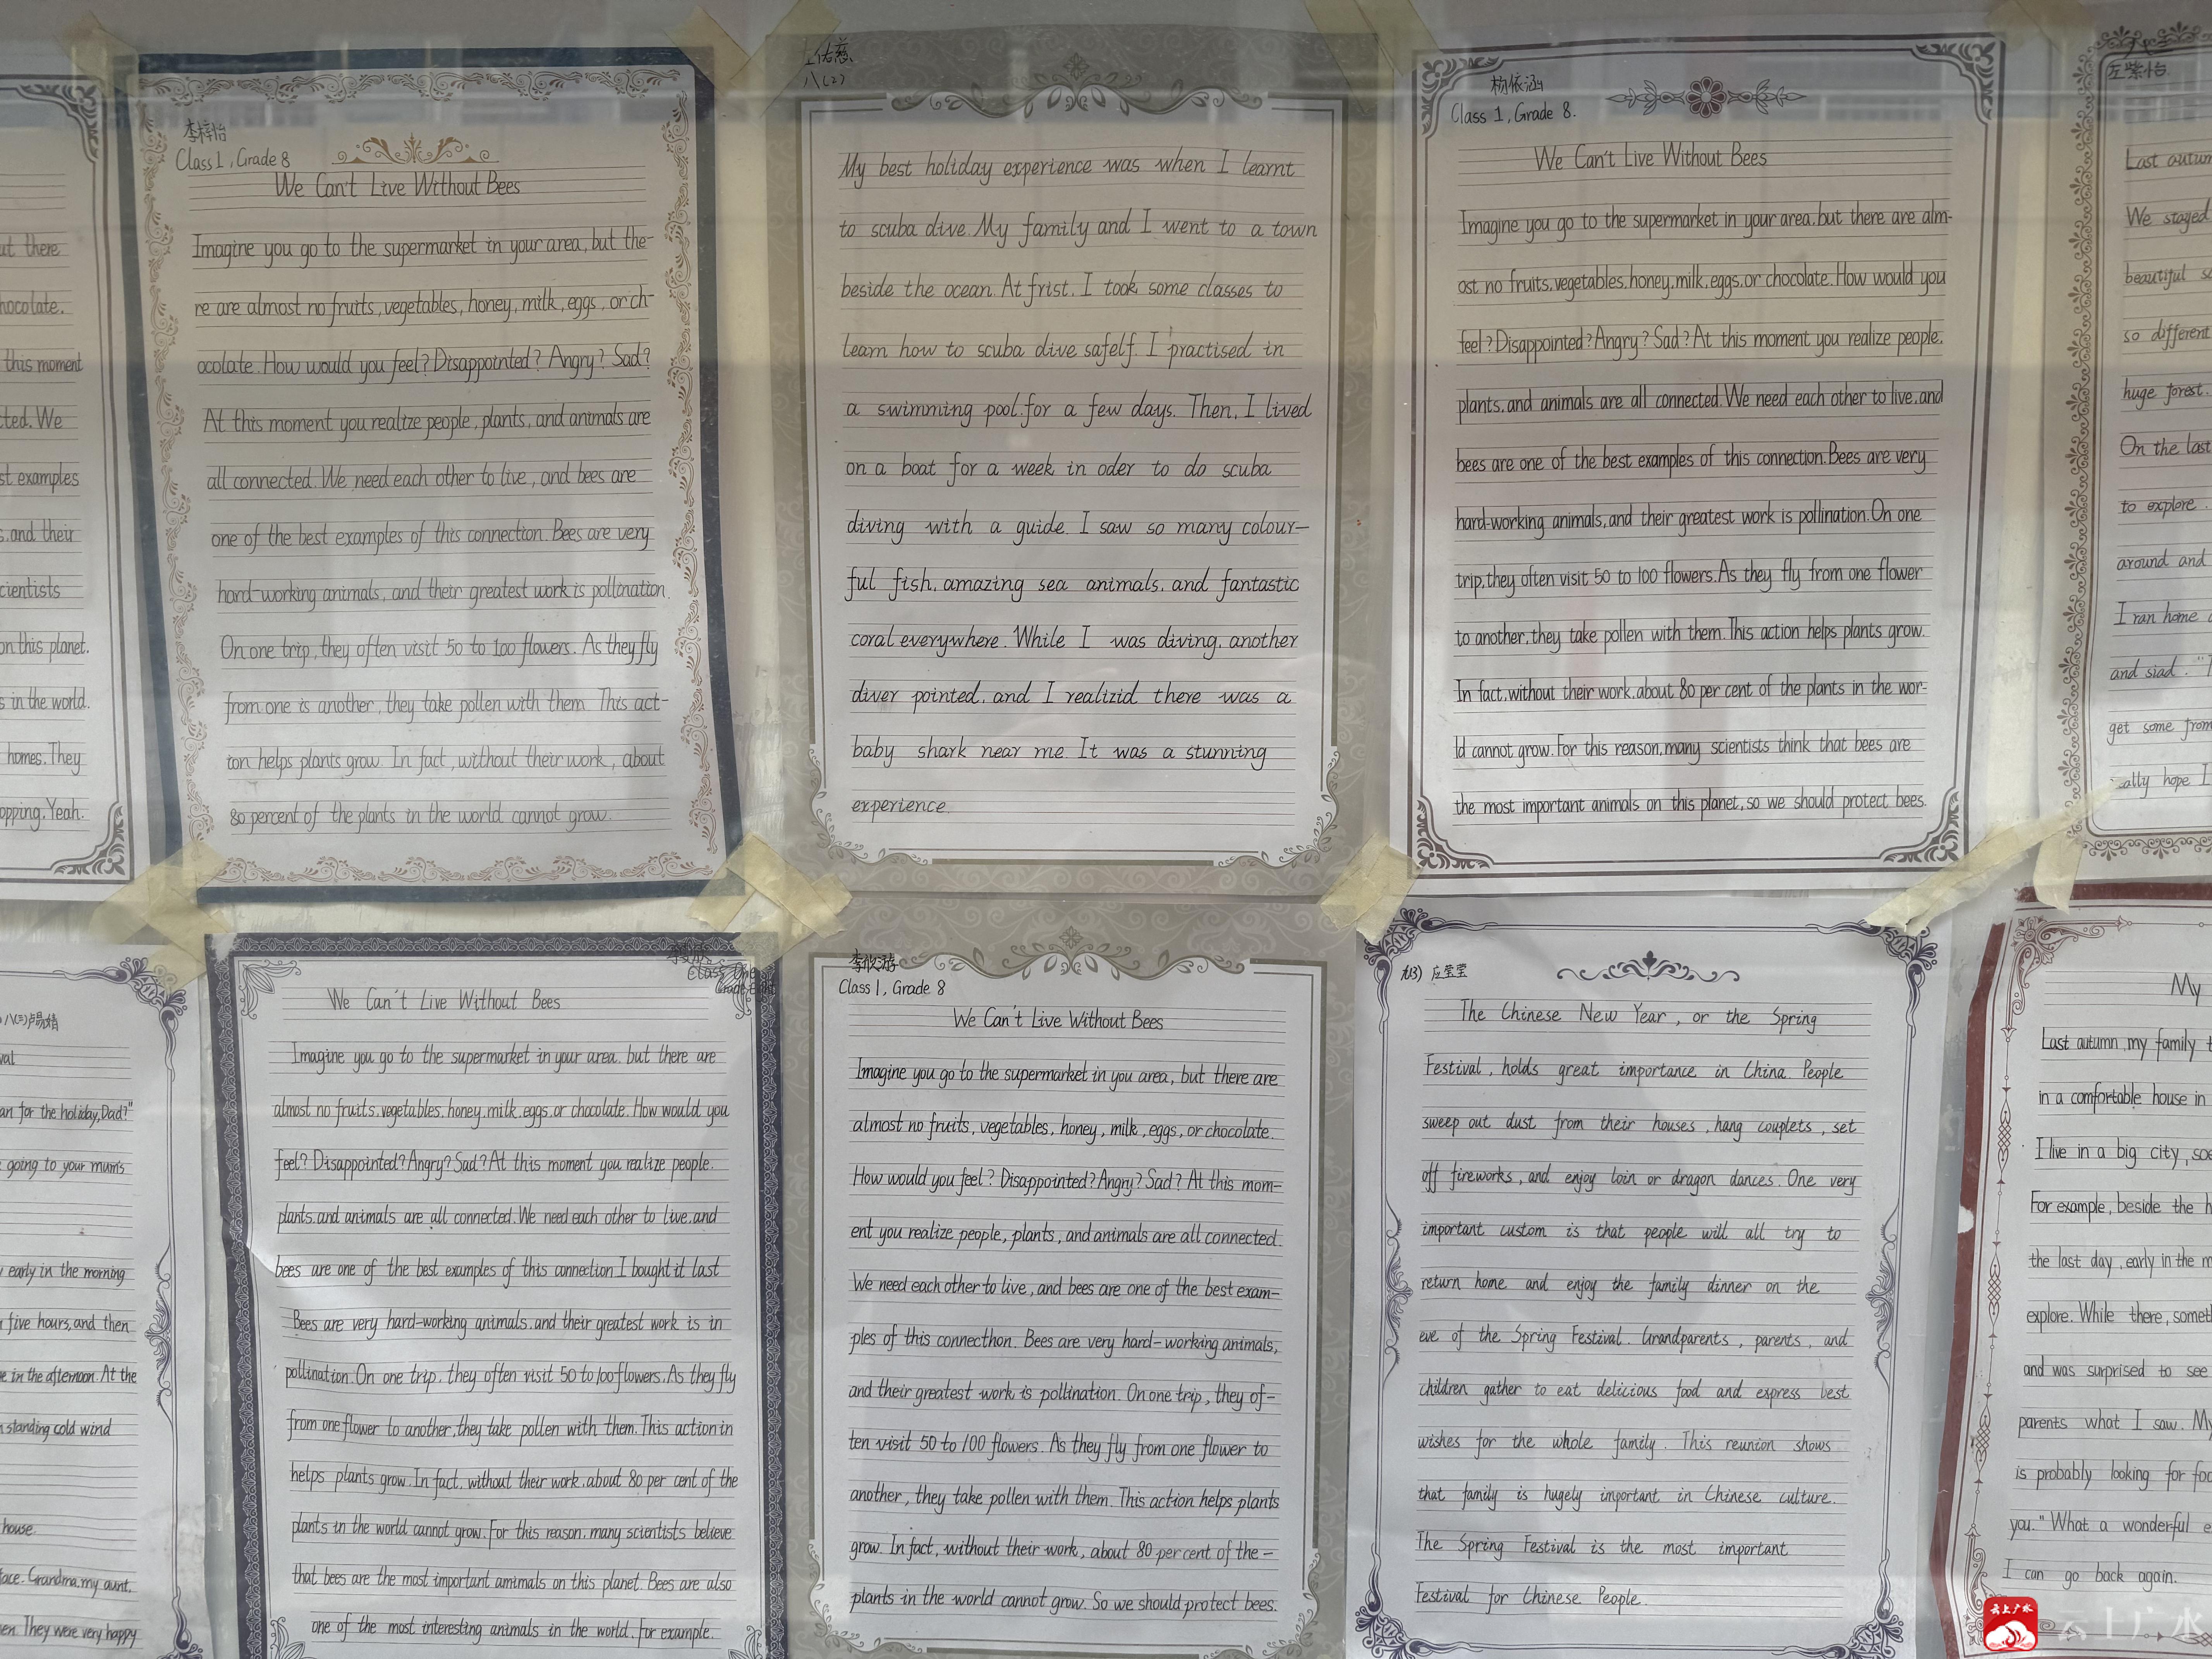 ut there
hocolate.
this moment
cted. We
st examples
s. and their
cientists
on this planet.
s in the world.
homes. They
opping. Yeah.
李梓怡
Class 1, Grade 8
We Can't Live Without Bees
Imagine you go to the supermarket in your area, but the-
re are almost no fruits, vegetables, honey, milk, eggs, or ch-
ocolate. How would you feel? Disappointed? Angry? Sad?
At this moment you realize people, plants, and animals are
all connected. We need each other to live, and bees are
one of the best examples of this connection. Bees are very
hard-working animals, and their greatest work is pollination.
On one trip, they often visit 50 to 100 flowers. As they fly
from one is another, they take pollen with them. This act-
ion helps plants grow. In fact, without their work, about
80 percent of the plants in the world cannot grow.
八(2)
My best holiday experience was when I learnt
to scuba dive. My family and I went to a town
beside the ocean. At frist, I took some classes to
learn how to scuba dive safelf. I practised in
a swimming pool for a few days. Then, I lived
on a boat for a week in oder to do scuba
diving with a guide. I saw so many colour-
ful fish, amazing sea animals, and fantastic
coral everywhere. While I was diving, another
diver pointed, and I realizid there was a
baby shark near me. It was a stunning
experience.
杨依涵
Class 1, Grade 8.
We Can't Live Without Bees
Imagine you go to the supermarket in your area, but there are alm-
ost no fruits, vegetables, honey, milk, eggs, or chocolate. How would you
feel? Disappointed? Angry? Sad? At this moment you realize people,
plants, and animals are all connected. We need each other to live, and
bees are one of the best examples of this connection. Bees are very
hard-working animals, and their greatest work is pollination. On one
trip, they often visit 50 to 100 flowers. As they fly from one flower
to another, they take pollen with them. This action helps plants grow.
In fact, without their work, about 80 per cent of the plants in the wor-
ld cannot grow. For this reason, many scientists think that bees are
the most important animals on this planet, so we should protect bees.
左紫怡
Last autum
We stayed
beautiful s
so different
huge forest.
On the last
to explore.
around and
I ran home
and siad. "
get some from
ally hope I
val
an for the holiday, Dad?"
going to your mum's
early in the morning
five hours, and then
e in the afternoon. At the
standing cold wind
house.
face. Grandma, my aunt,
en. They were very happy
Class One
Grade Eight
We Can't Live Without Bees
Imagine you go to the supermarket in your area, but there are
almost no fruits, vegetables, honey, milk, eggs, or chocolate. How would you
feel? Disappointed? Angry? Sad? At this moment you realize people,
plants, and animals are all connected. We need each other to live, and
bees are one of the best examples of this connection I bought it last
Bees are very hard-working animals, and their greatest work is in
pollination. On one trip, they often visit 50 to 100 flowers. As they fly
from one flower to another, they take pollen with them. This action in
helps plants grow. In fact, without their work, about 80 per cent of the
plants in the world cannot grow. For this reason, many scientists believe
that bees are the most important amimals on this planet. Bees are also
one of the most interesting animals in the world. For example.
Class 1, Grade 8
We Can't Live Without Bees
Imagine you go to the supermarket in you area, but there are
almost no fruits, vegetables, honey, milk, eggs, or chocolate.
How would you feel? Disappointed? Angry? Sad? At this mom-
ent you realize people, plants, and animals are all connected.
We need each other to live, and bees are one of the best exam-
ples of this connecthon. Bees are very hard-working animals,
and their greatest work is pollination. On one trip, they of-
ten visit 50 to 100 flowers. As they fly from one flower to
another, they take pollen with them. This action helps plants
grow. In fact, without their work, about 80 per cent of the-
plants in the world cannot grow. So we should protect bees.
应莹莹
The Chinese New Year, or the Spring
Festival, holds great importance in China. People
sweep out dust from their houses, hang couplets, set
off fireworks, and enjoy loin or dragon dances. One very
important custom is that people will all try to
return home and enjoy the family dinner on the
eve of the Spring Festival. Grandparents, parents, and
children gather to eat delicious food and express best
wishes for the whole family. This reunion shows
that family is hugely important in Chinese culture.
The Spring Festival is the most important
Festival for Chinese People.
My
Last autumn, my family t
in a comfortable house in
I live in a big city, soe
For example, beside the h
the last day, early in the m
explore. While there, somet
and was surprised to see
parents what I saw. My
is probably looking for foo
you." What a wonderful e
I can go back again.
云上广水
云上广水